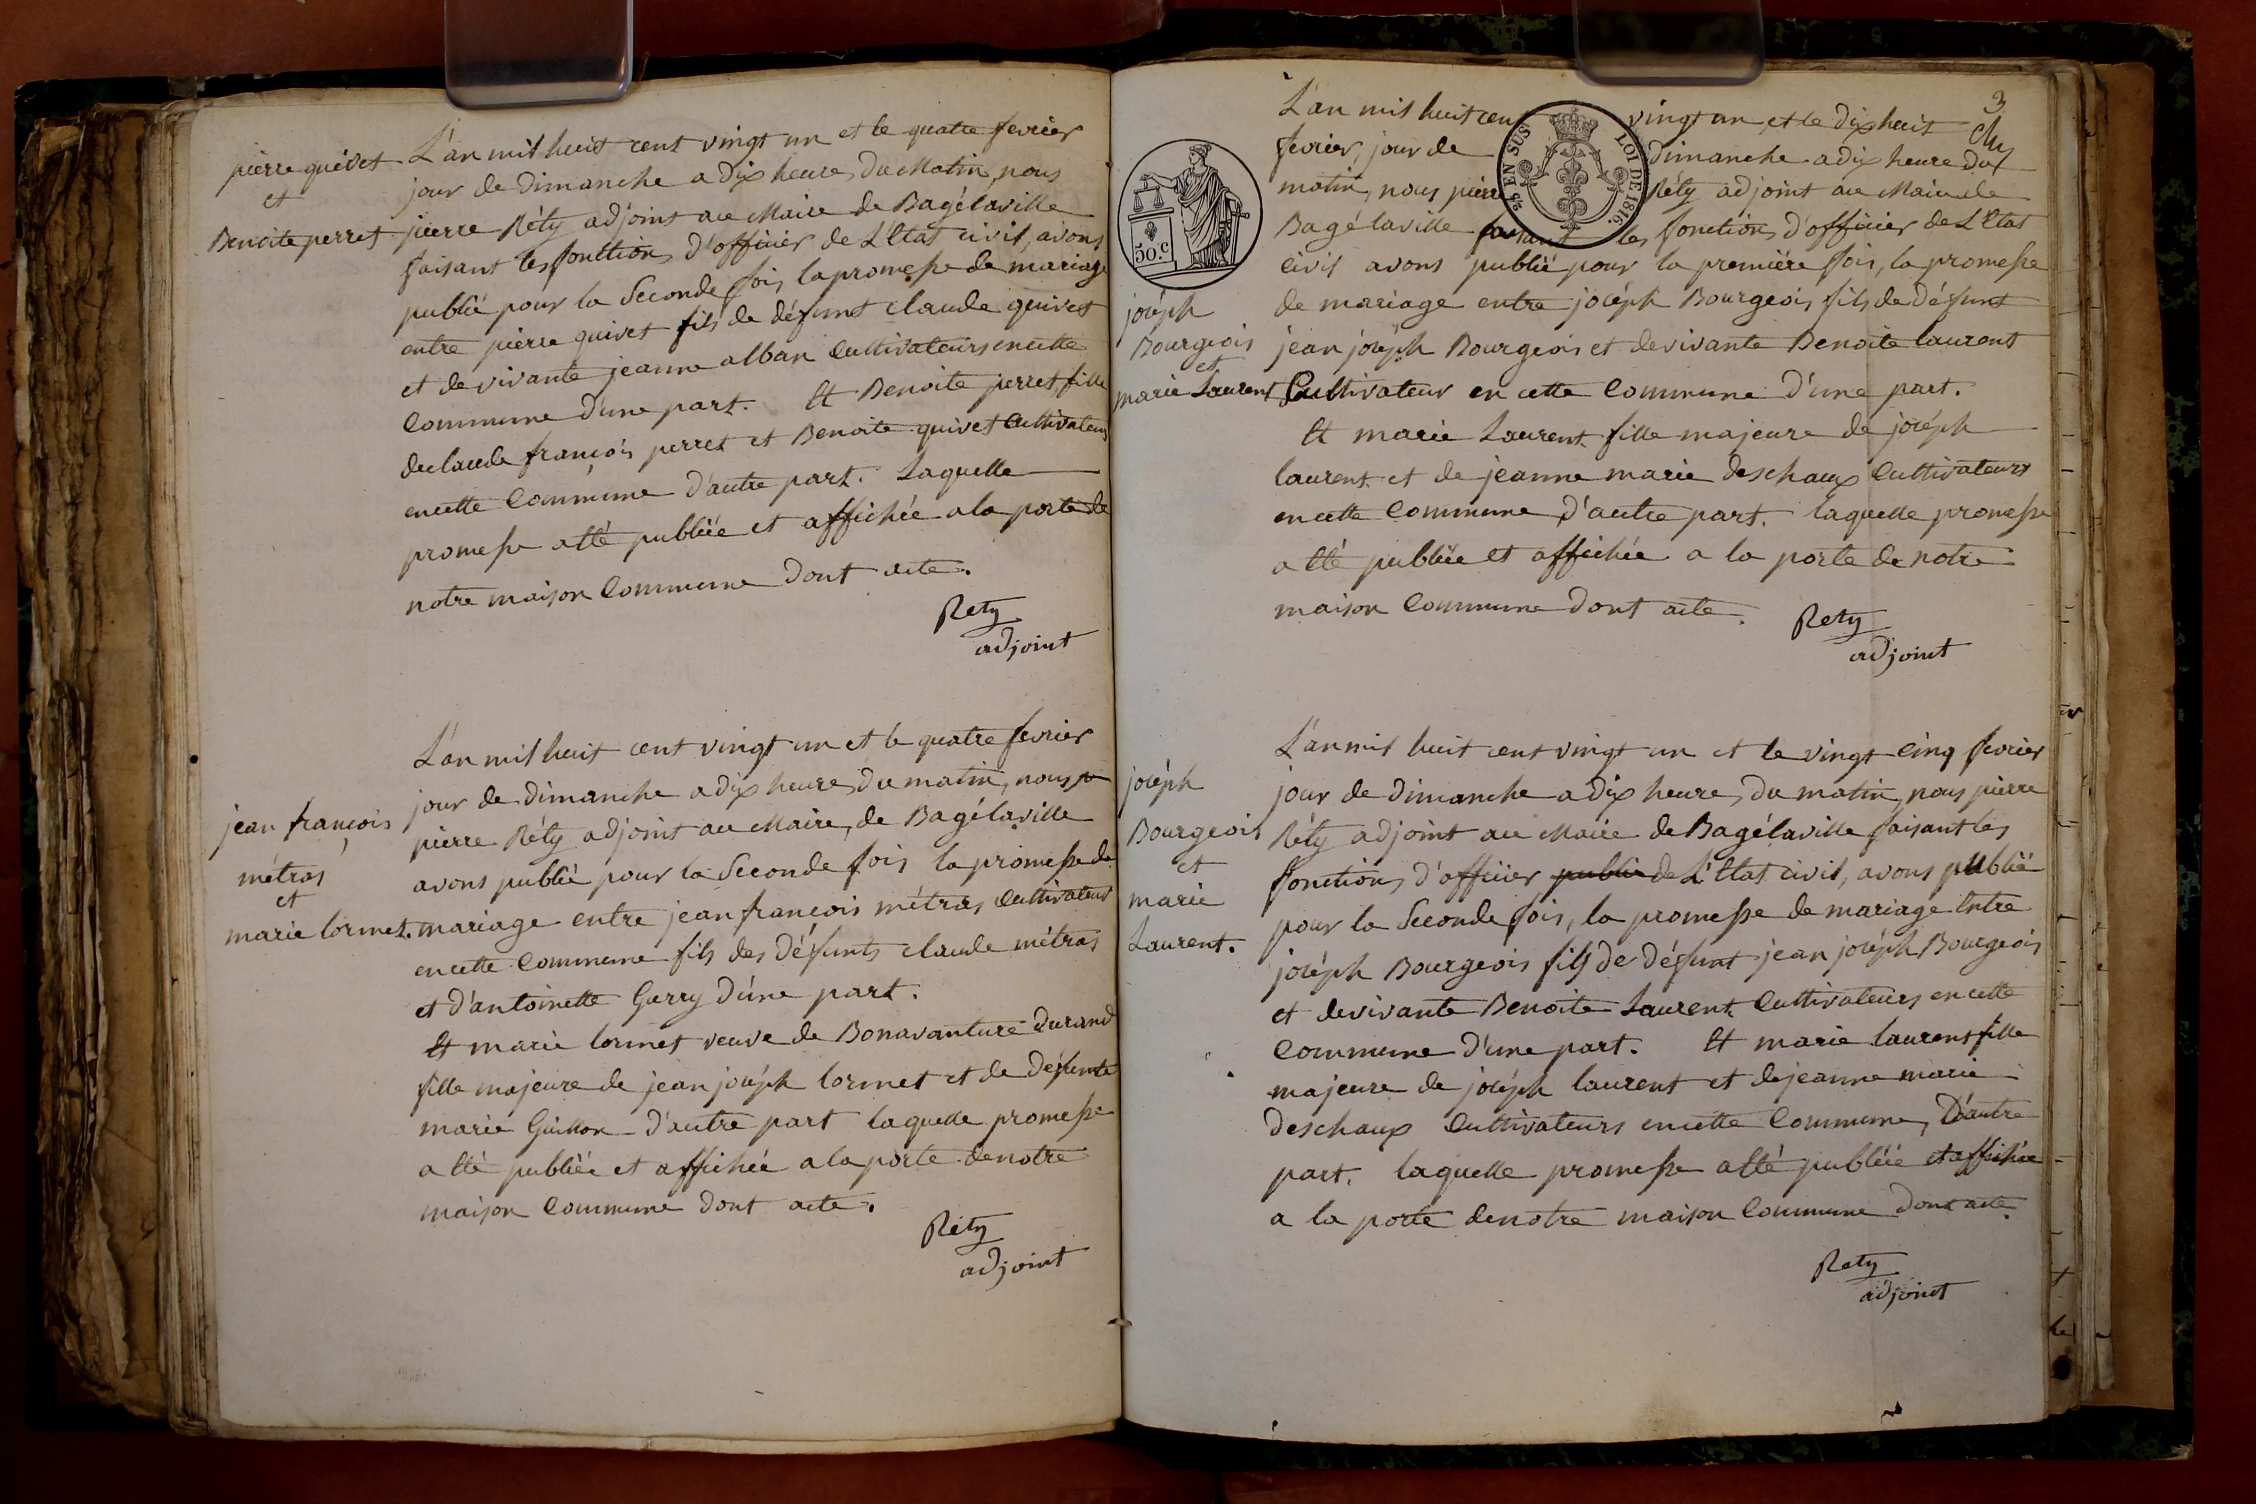 pierre quivet
et
Benoite perret
L'an mil huit cent vingt un et le quatre fevrier
jour de dimanche a dix heure du Matin, nous
pierre Réty adjoint au Maire de Bagélaville
faisant les fonctions d'officier de L'Etat civil, avons
publié pour la Seconde fois, la promesse de mariage
entre pierre quivet fils de défunt claude quivet
et de vivante jeanne alban Cultivateurs en cette
Commune d'une part. Et Benoite perret fille
de claude françois perret et Benoite quivet Cultivateurs
en cette Commune d'autre part. Laquelle
promesse a été publiée et affichée a la porte de
notre maison Commune dont acte.
Rety
adjoint
jean françois
métras
et
marie lormet.
L'an mil huit cent vingt un et le quatre fevrier
jour de dimanche a dix heure du matin, nous
pierre Réty adjoint au Maire, de Bagélaville
avons publié pour la Seconde fois la promesse de
mariage entre jean françois métras Cultivateur
en cette Commune fils des défunts claude métras
et d'antoinette Garry d'une part.
Et marie lormet veuve de Bonavanture durand
fille majeure de jean joséph lormet et de défunte
marie Guillon d'autre part laquelle promesse
a été publiée et affichée a la porte de notre
maison Commune dont acte.
Réty
adjoint
3
25 EN SUS
LOI DE 1816.
50.c
joséph
Bourgeois
et
marie Laurent
L'an mil huit cen vingt un et le dix huit
fevrier, jour de dimanche a dix heure du
matin, nous pierre Réty adjoint au Maire de
Bagélaville faisant les fonctions d'officier de L'Etat
civil avons publié pour la première fois, la promesse
de mariage entre joséph Bourgeois fils de défunt
jean joséph Bourgeois et de vivante Benoite laurent
Cultivateur en cette Commune d'une part.
Et marie Laurent fille majeure de joséph
laurent et de jeanne marie deschaux Cultivateurs
en cette Commune d'autre part. laquelle promesse
a été publiée et affichée a la porte de notre
maison Commune dont acte.
Rety
adjoint
joséph
Bourgeois
et
marie
Laurent.
L'an mil huit cent vingt un et le vingt Cinq fevrier
jour de dimanche a dix heure, du matin, nous pierre
Réty adjoint au Maire de Bagélaville faisant les
fonctions d'officier publie de L'Etat civil, avons publié
pour la Seconde fois, la promesse de mariage Entre
joséph Bourgeois fils de défunt jean joséph Bourgeois
et de vivante Benoite Laurent Cultivateurs en cette
Commune d'une part. Et marie laurent fille
majeure de joséph laurent et de jeanne marie
deschaux Cultivateurs en cette Commune, D'autre
part. laquelle promesse a été publiée et affichée
a la porte de notre maison Commune dont acte.
Rety
adjoint